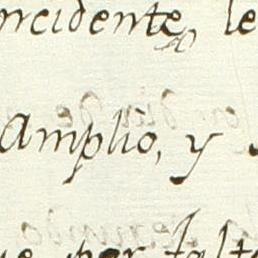 ncidente, le
Amplio, y
ue por falt